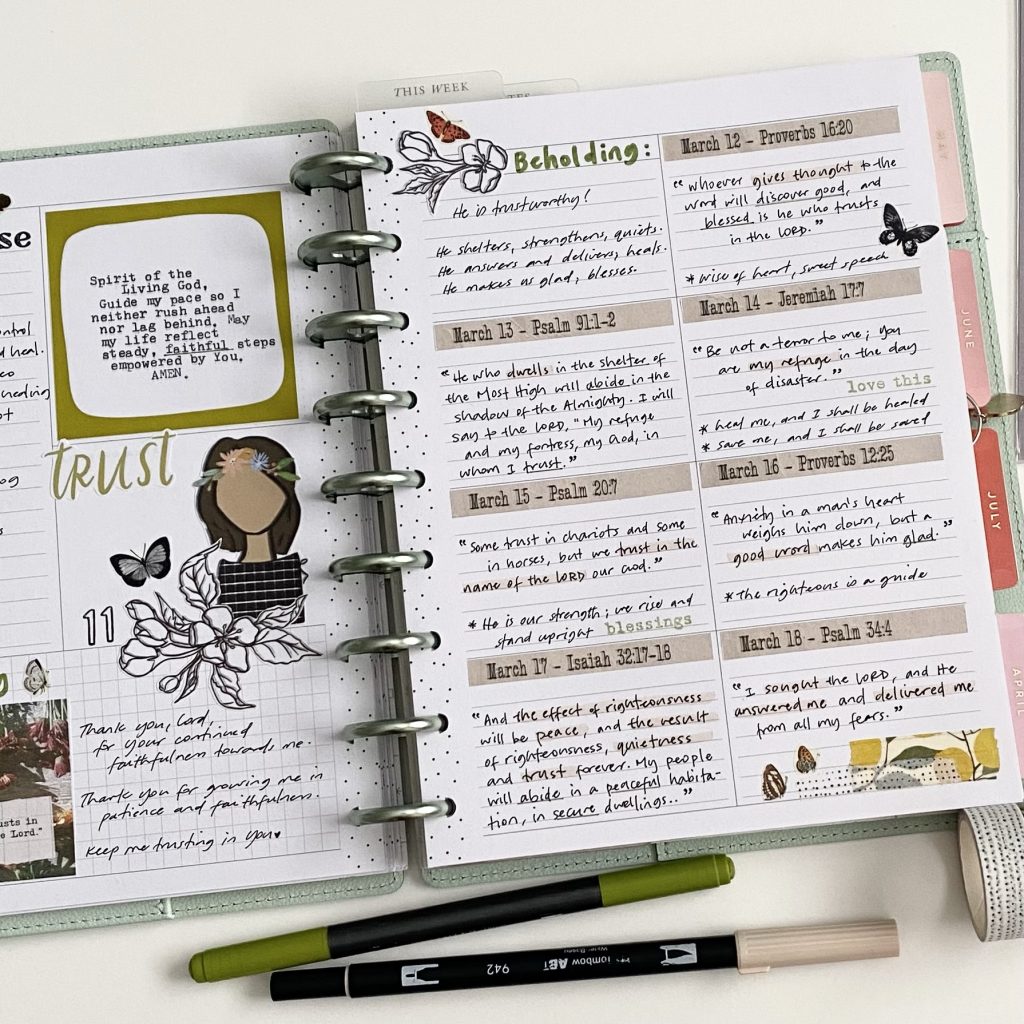 THIS WEEK
se
ontrol
d heal.
Spirit of the
Living God,
Guide my pace so I
neither rush ahead
nor lag behind. May
my life reflect
steady, faithful steps
empowered by You,
AMEN.
trust
11
Thank you, Lord,
for your continued
faithfulness towards me.
Thank you for growing me in
patience and faithfulness.
Keep me trusting in You
usts in
e Lord."
Beholding:
He is trustworthy!
He shelters, strengthens, quiets.
He answers and delivers, heals.
He makes us glad, blesses.
March 12 - Proverbs 16:20
"Whoever gives thought to the
word will discover good, and
blessed is he who trusts
in the LORD."
* wise of heart, sweet speech
March 13 - Psalm 91:1-2
"He who dwells in the shelter of
the Most High will abide in the
shadow of the Almighty. I will
say to the LORD, "My refuge
and my fortress, my God, in
whom I trust."
March 14 - Jeremiah 17:7
"Be not a terror to me; you
are my refuge in the day
of disaster."
love this
* heal me, and I shall be healed
* save me, and I shall be saved
March 15 - Psalm 20:7
"Some trust in chariots and some
in horses, but we trust in the
name of the LORD our God."
* He is our strength; we rise and
stand upright blessings
March 16 - Proverbs 12:25
"Anxiety in a man's heart
weighs him down, but a
good word makes him glad."
* The righteous is a guide
March 17 - Isaiah 32:17-18
"And the effect of righteousness
will be peace, and the result
of righteousness, quietness
and trust forever. My people
will abide in a peaceful habita-
tion, in secure dwellings.."
March 18 - Psalm 34:4
"I sought the LORD, and He
answered me and delivered me
from all my fears."
MAY
JUNE
JULY
APRIL
942
Tombow ABT